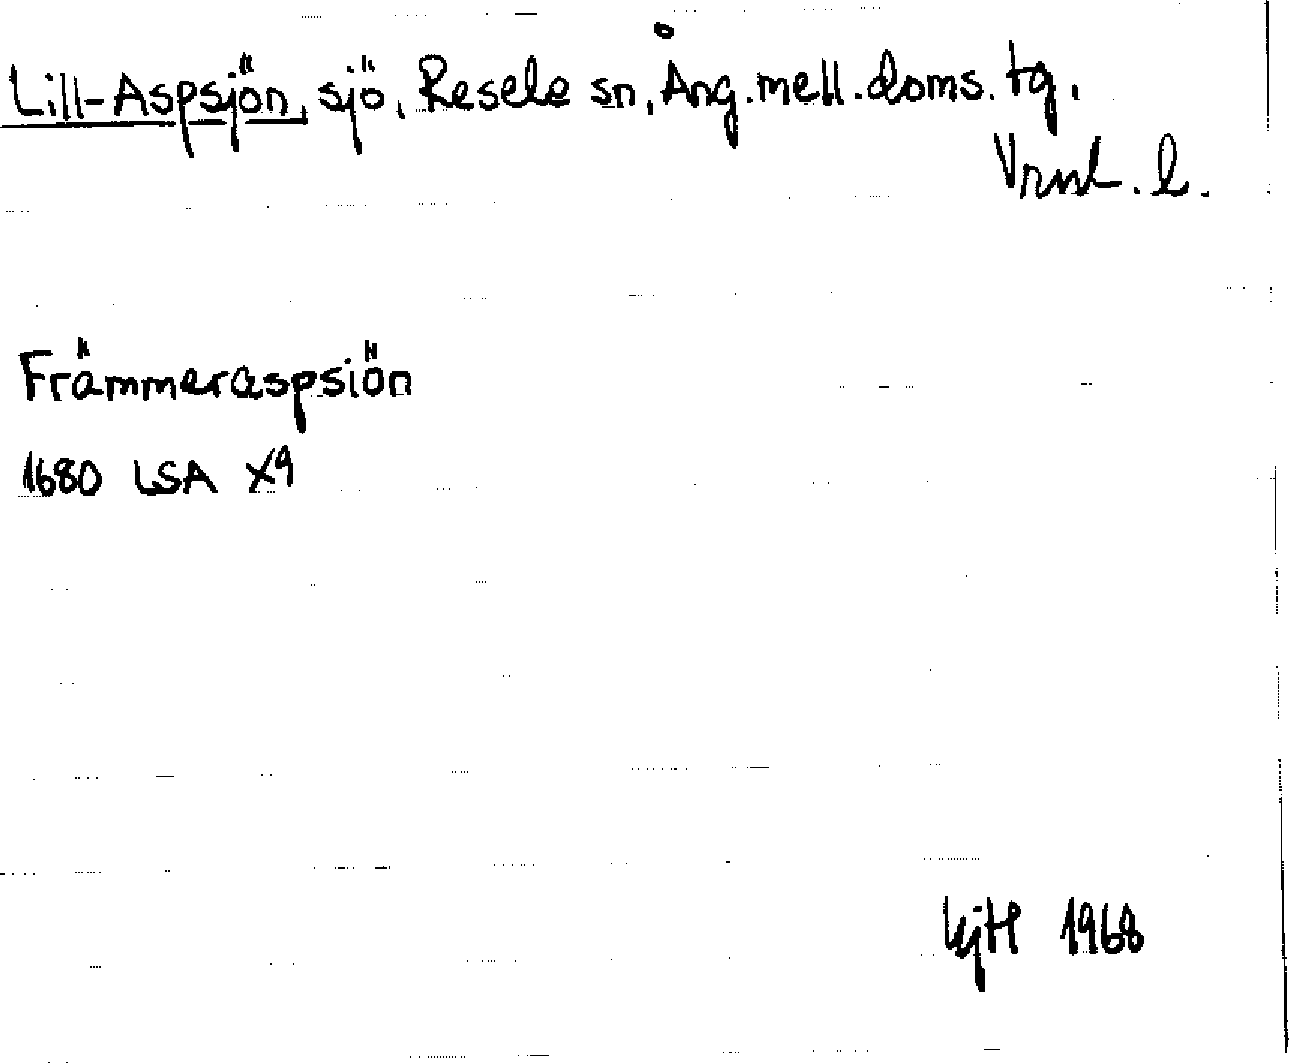 Lill-Aspsjön, sjö, Resele sn, Ång. mell. doms. tg.
Vrnl. l.
Främmeraspsiön
1680 LSA X9
KjH 1968